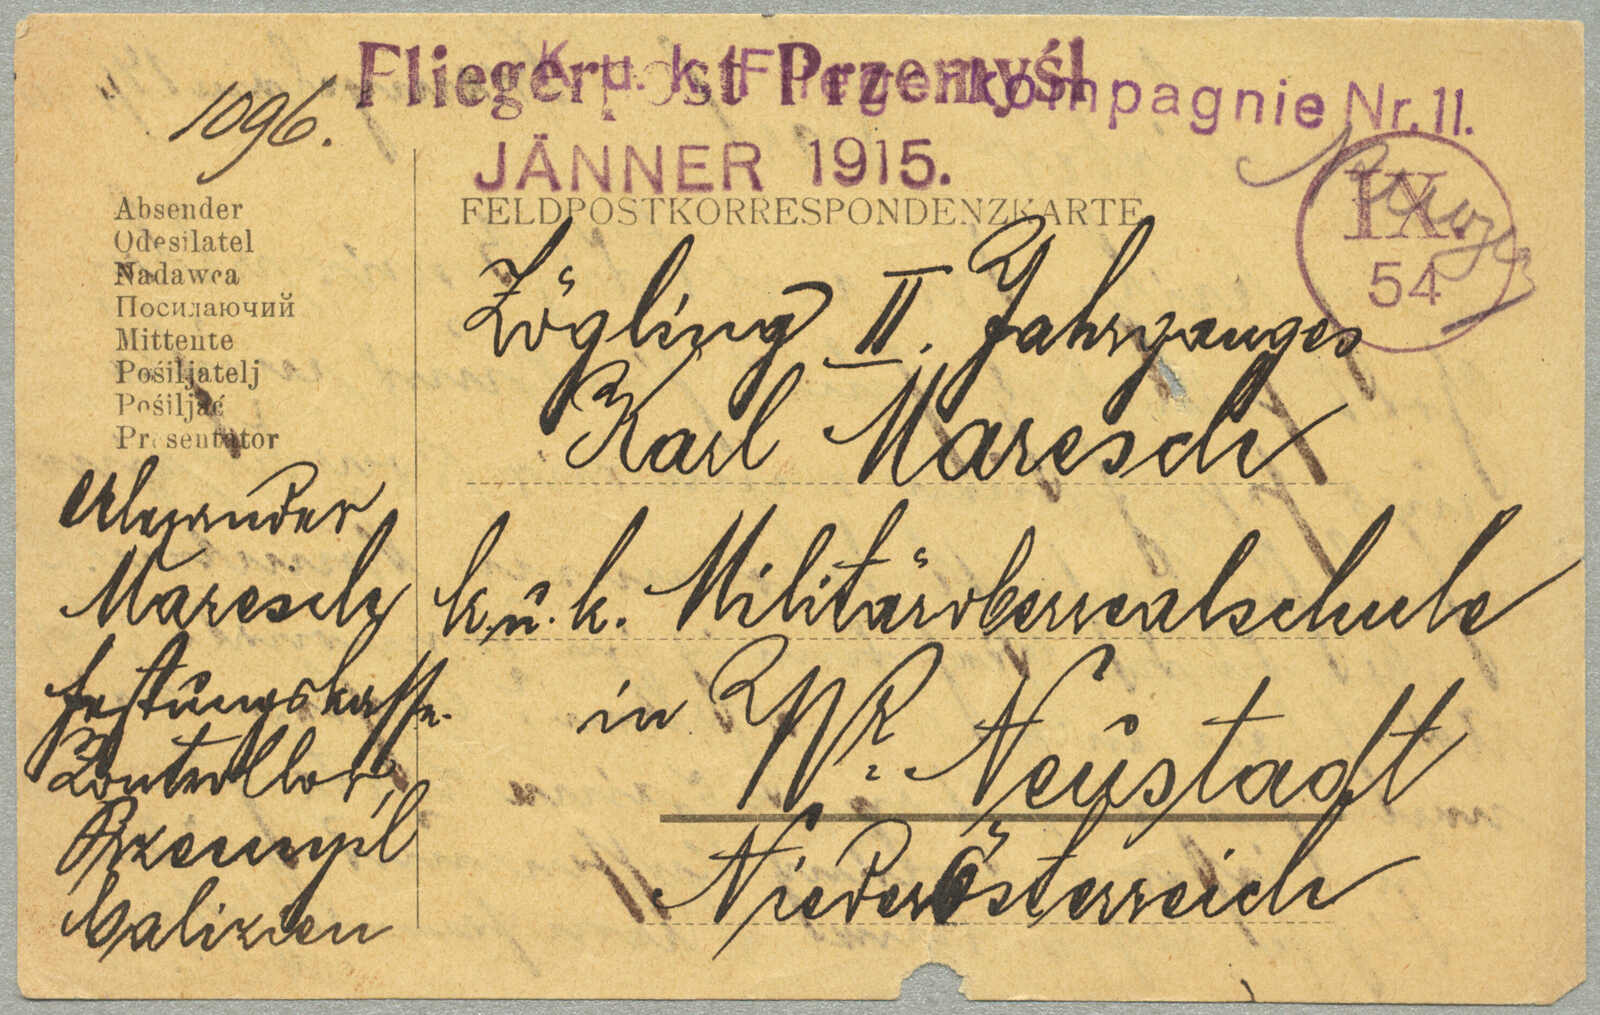 Fliegerpost Przemyśl
K. u. k. Fliegerkompagnie Nr. 11.
JÄNNER 1915.
1096.
IX.
54
FELDPOSTKORRESPONDENZKARTE
Absender
Odesilatel
Nadawca
Посилаючий
Mittente
Pošiljatelj
Pošiljač
Presentator
Alexander
Maresch
Festungskasse-
Kontrollor,
Przemyśl
Galizien
Zögling II. Jahrganges
Karl Maresch
k. u. k. Militäroberrealschule
in Wr. Neustadt
Niederösterreich